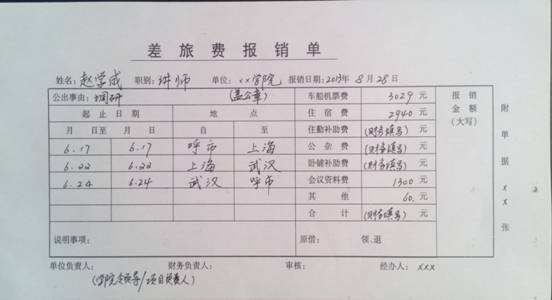 差旅费报销单
姓名：赵学成 职别：讲师 单位：xx学院 报销日期：2013年 8月 28日
公出事由：调研 (盖公章) 车船机票费 3029 元 报销金额（大写）
起止日期 地点 住宿费 2940 元
月 日至 月 日 自 至 住勤补助费 (财务填写) 元
6.17 6.17 呼市 上海 公杂费 (财务填写) 元
6.22 6.22 上海 武汉 卧铺补助费 (财务填写) 元
6.24 6.24 武汉 呼市 会议资料费 1300 元
其他 60. 元
合计 (财务填写) 元
说明事项： 原借： 领、退
附单据 x x 张
单位负责人： 财务负责人： 审核： 经办人：xxx
(学院领导/项目负责人)